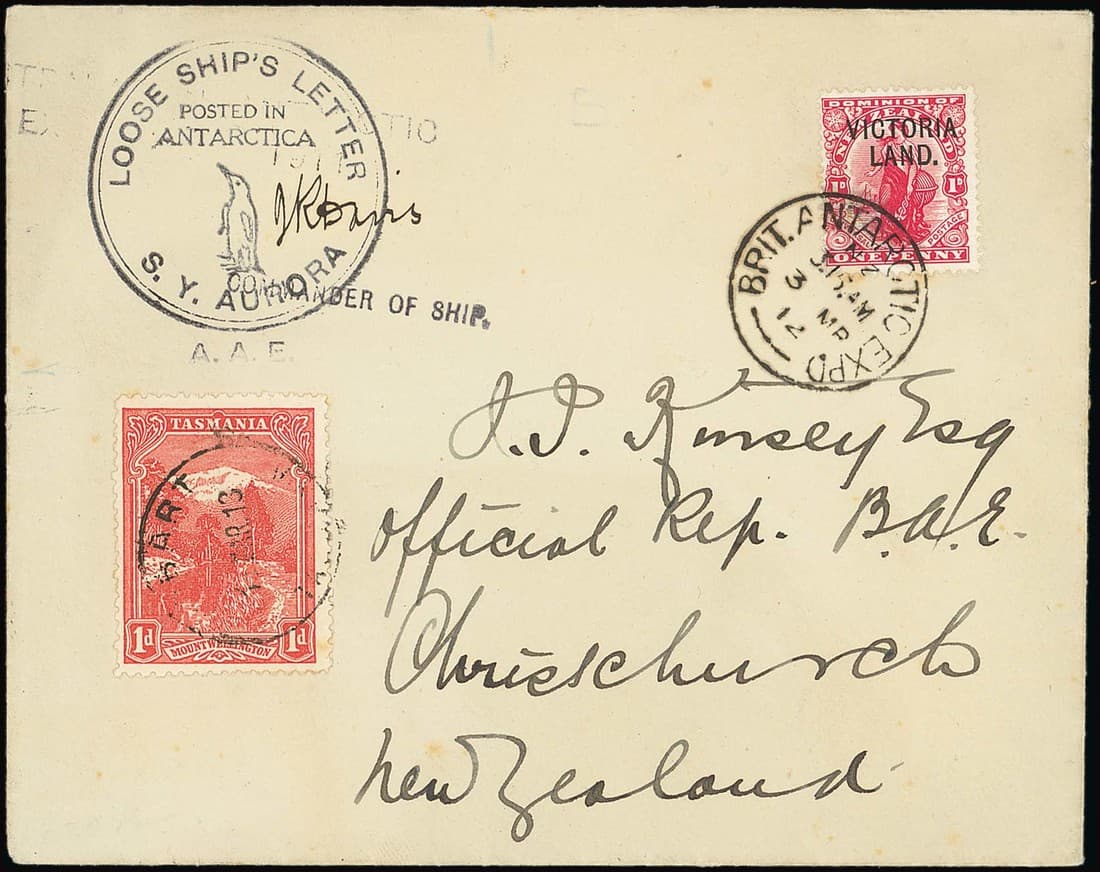 LOOSE SHIP'S LETTER
POSTED IN
ANTARCTICA
J K Davis
S. Y. AURORA
COMMANDER OF SHIP.
A. A. E.
DOMINION OF
NEW ZEALAND
VICTORIA
LAND.
1D 1D
POSTAGE
ONE PENNY
BRIT. ANTARCTIC EXPD
3 MR
12
TASMANIA
1d 1d
MOUNT WELLINGTON
J. J. Kinsey Esq
Official Rep. B.A.E.
Christchurch
New Zealand